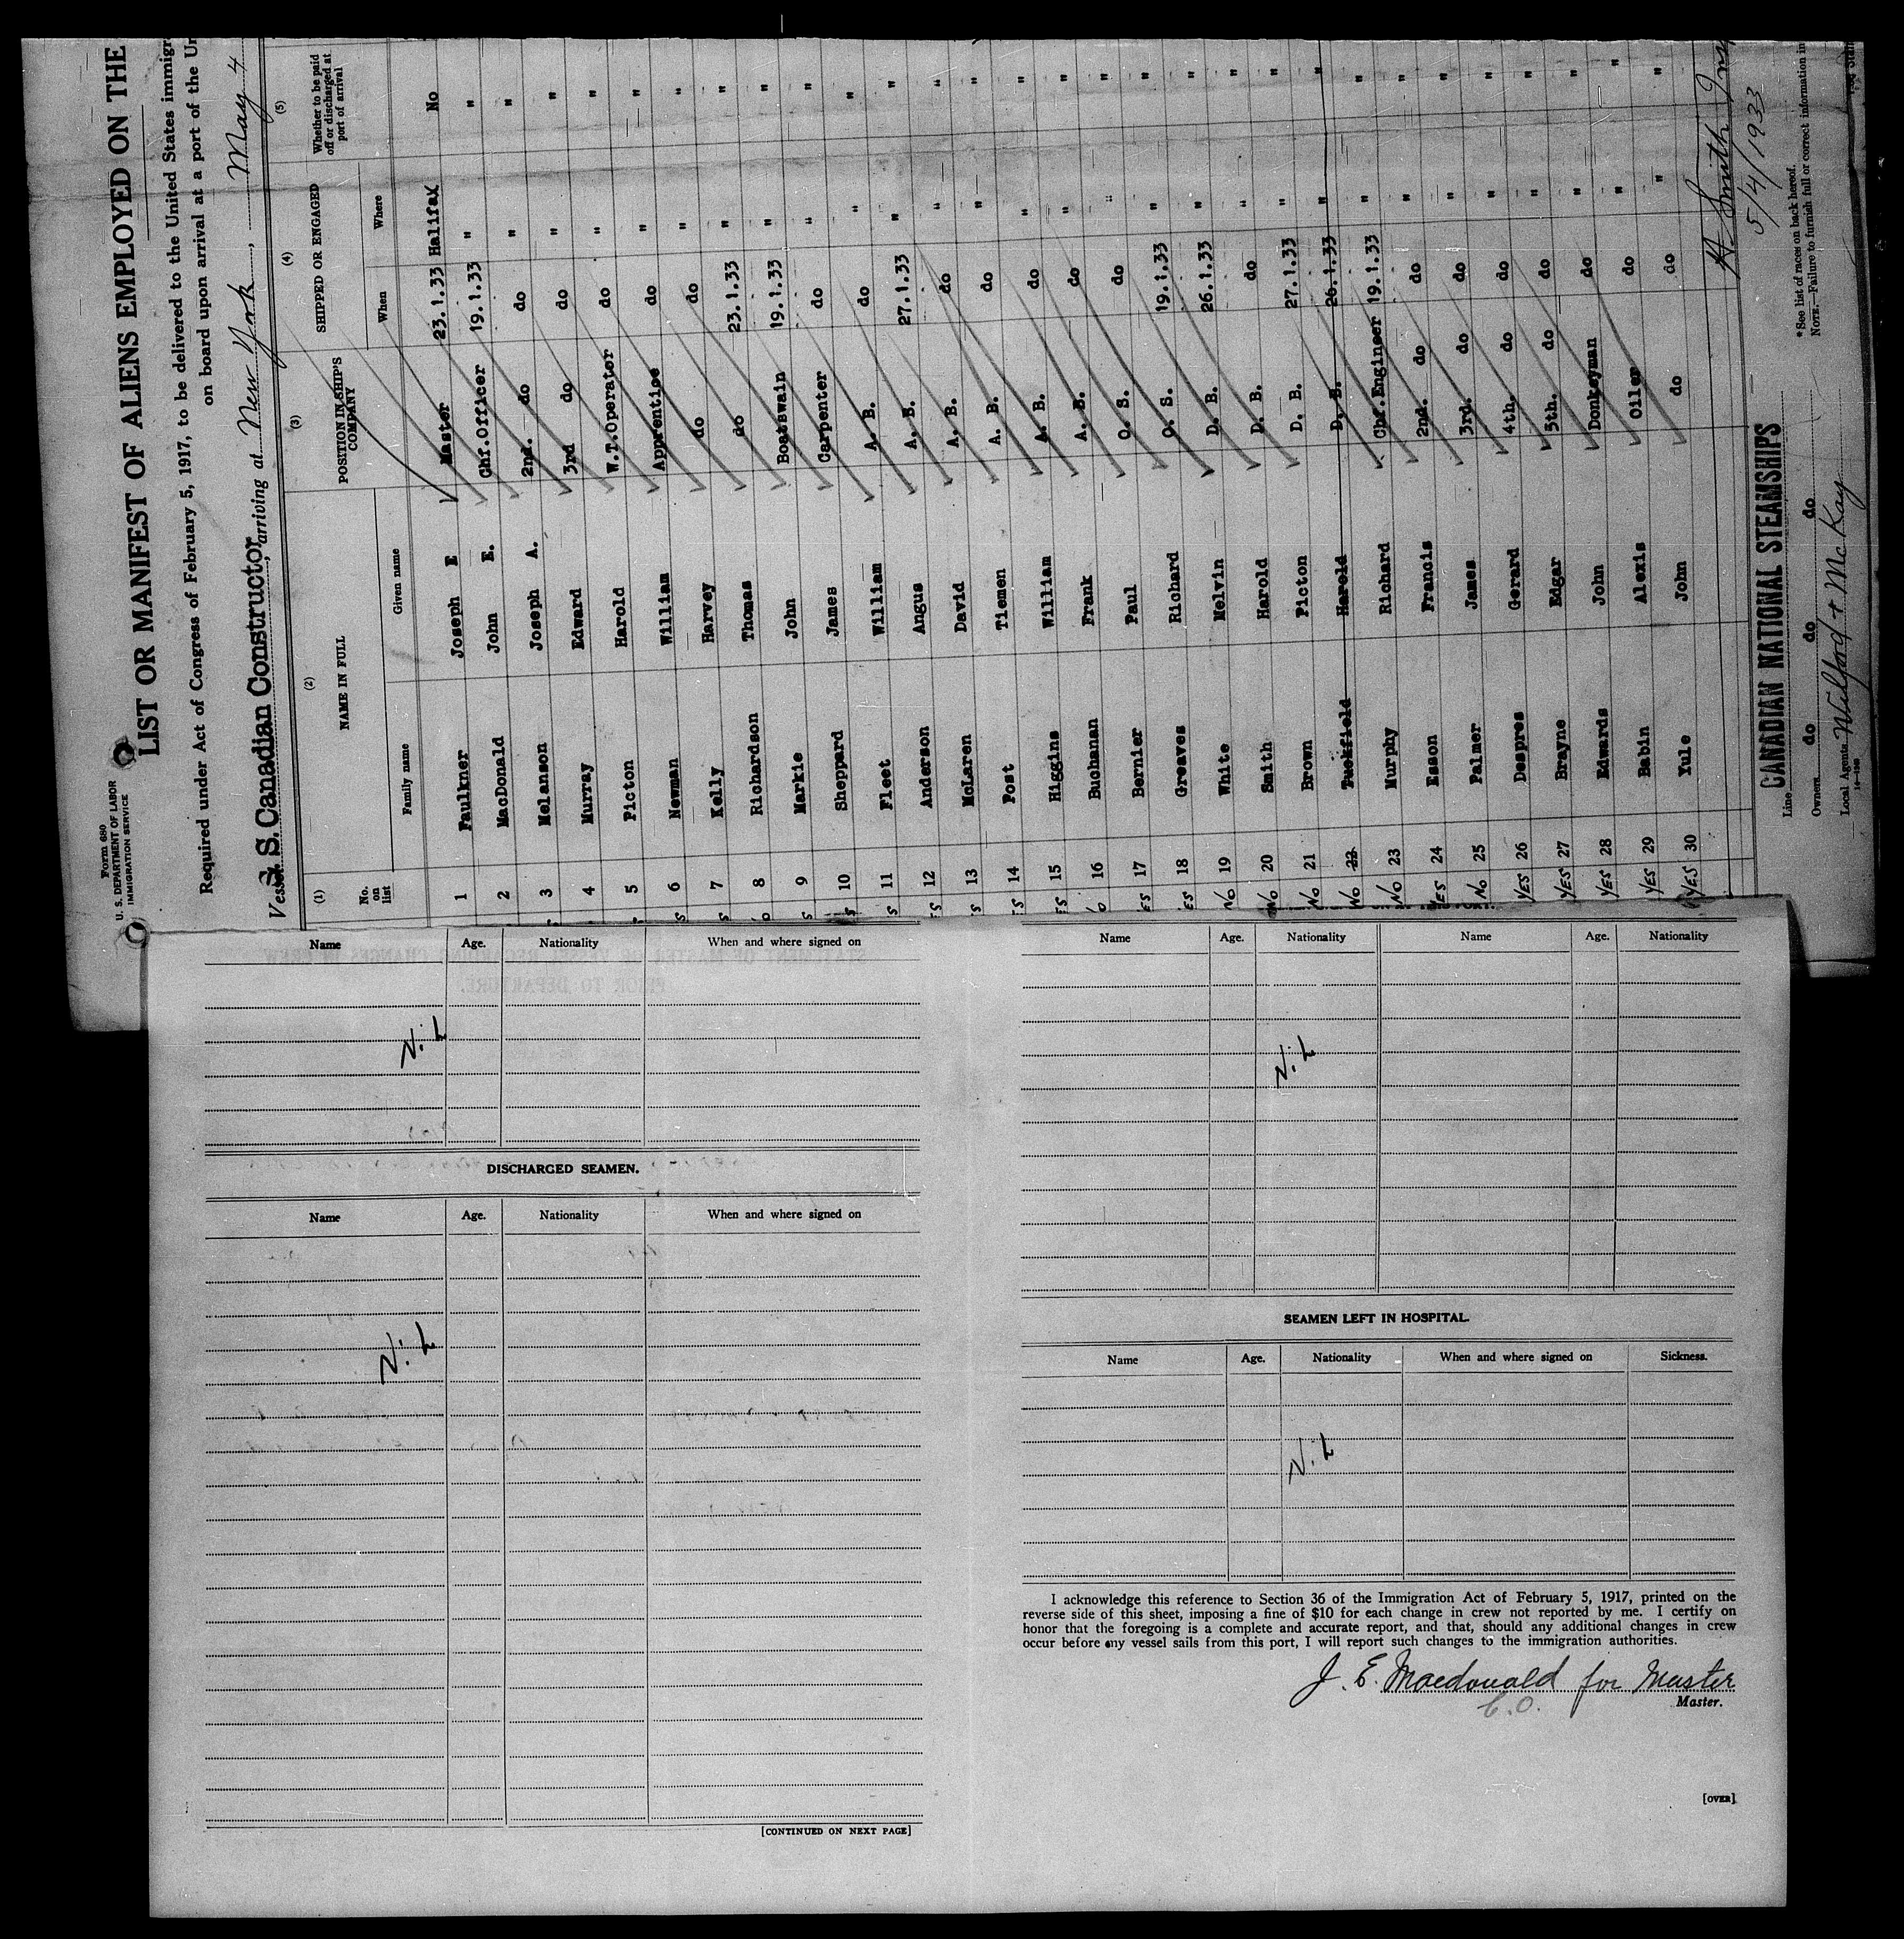 Form 680
U. S. DEPARTMENT OF LABOR
IMMIGRATION SERVICE
LIST OR MANIFEST OF ALIENS EMPLOYED ON THE
Required under Act of Congress of February 5, 1917, to be delivered to the United States immigr
on board upon arrival at a port of the Un
Vessel S. S. Canadian Constructor, arriving at New York, May 4
(1) (2) (3) (4) (5)
No. on list NAME IN FULL POSITION IN SHIP'S COMPANY SHIPPED OR ENGAGED Whether to be paid off or discharged at port of arrival
Family name Given name When Where
1 Faulkner Joseph E Master 23.1.33 Halifax No
2 MacDonald John E. Chf.Officer 19.1.33 " "
3 Melanson Joseph A. 2nd. do do " "
4 Murray Edward 3rd do do " "
5 Picton Harold W.T.Operator do " "
S 6 Newman William Apprentice do " "
S 7 Kelly Harvey do do " "
O 8 Richardson Thomas do 23.1.33 " "
S 9 Markie John Boatswain 19.1.33 " "
S 10 Sheppard James Carpenter do " "
S 11 Fleet William A. B. do " "
ES 12 Anderson Angus A. B. 27.1.33 " "
S 13 McLaren David A. B. do " "
ES 14 Post Tiemen A. B. do " "
ES 15 Higgins William A. B. do " "
O 16 Buchanan Frank A. B. do " "
ES 17 Bernier Paul O. S. do " "
ES 18 Greaves Richard O. S. 19.1.33 " "
NO 19 White Melvin D. B. 26.1.33 " "
NO 20 Smith Harold D. B. do " "
NO 21 Brown Picton D. B. 27.1.33 " "
NO 22 Tuckfield Harold D. B. 26.1.33 " "
NO 23 Murphy Richard Chf.Engineer 19.1.33 " "
YES 24 Esson Francis 2nd. do do " "
NO 25 Palmer James 3rd. do do " "
YES 26 Despres Gerard 4th. do do " "
YES 27 Brayne Edgar 5th. do do " "
YES 28 Edwards John Donkeyman do " "
YES 29 Babin Alexis Oiler do " "
YES 30 Yule John do do " "
Smith
5/4/1933
Line CANADIAN NATIONAL STEAMSHIPS
Owners do do do
Local Agents Wilford & McKay
*See list of races on back hereof.
NOTE.—Failure to furnish full or correct information in
Name Age. Nationality When and where signed on
Nil
DISCHARGED SEAMEN.
Name Age. Nationality When and where signed on
Nil
[CONTINUED ON NEXT PAGE]
Name Age. Nationality Name Age. Nationality
Nil
SEAMEN LEFT IN HOSPITAL.
Name Age. Nationality When and where signed on Sickness.
Nil
I acknowledge this reference to Section 36 of the Immigration Act of February 5, 1917, printed on the
reverse side of this sheet, imposing a fine of $10 for each change in crew not reported by me. I certify on
honor that the foregoing is a complete and accurate report, and that, should any additional changes in crew
occur before any vessel sails from this port, I will report such changes to the immigration authorities.
J. E. Macdonald for Master
C.O. Master.
[OVER]